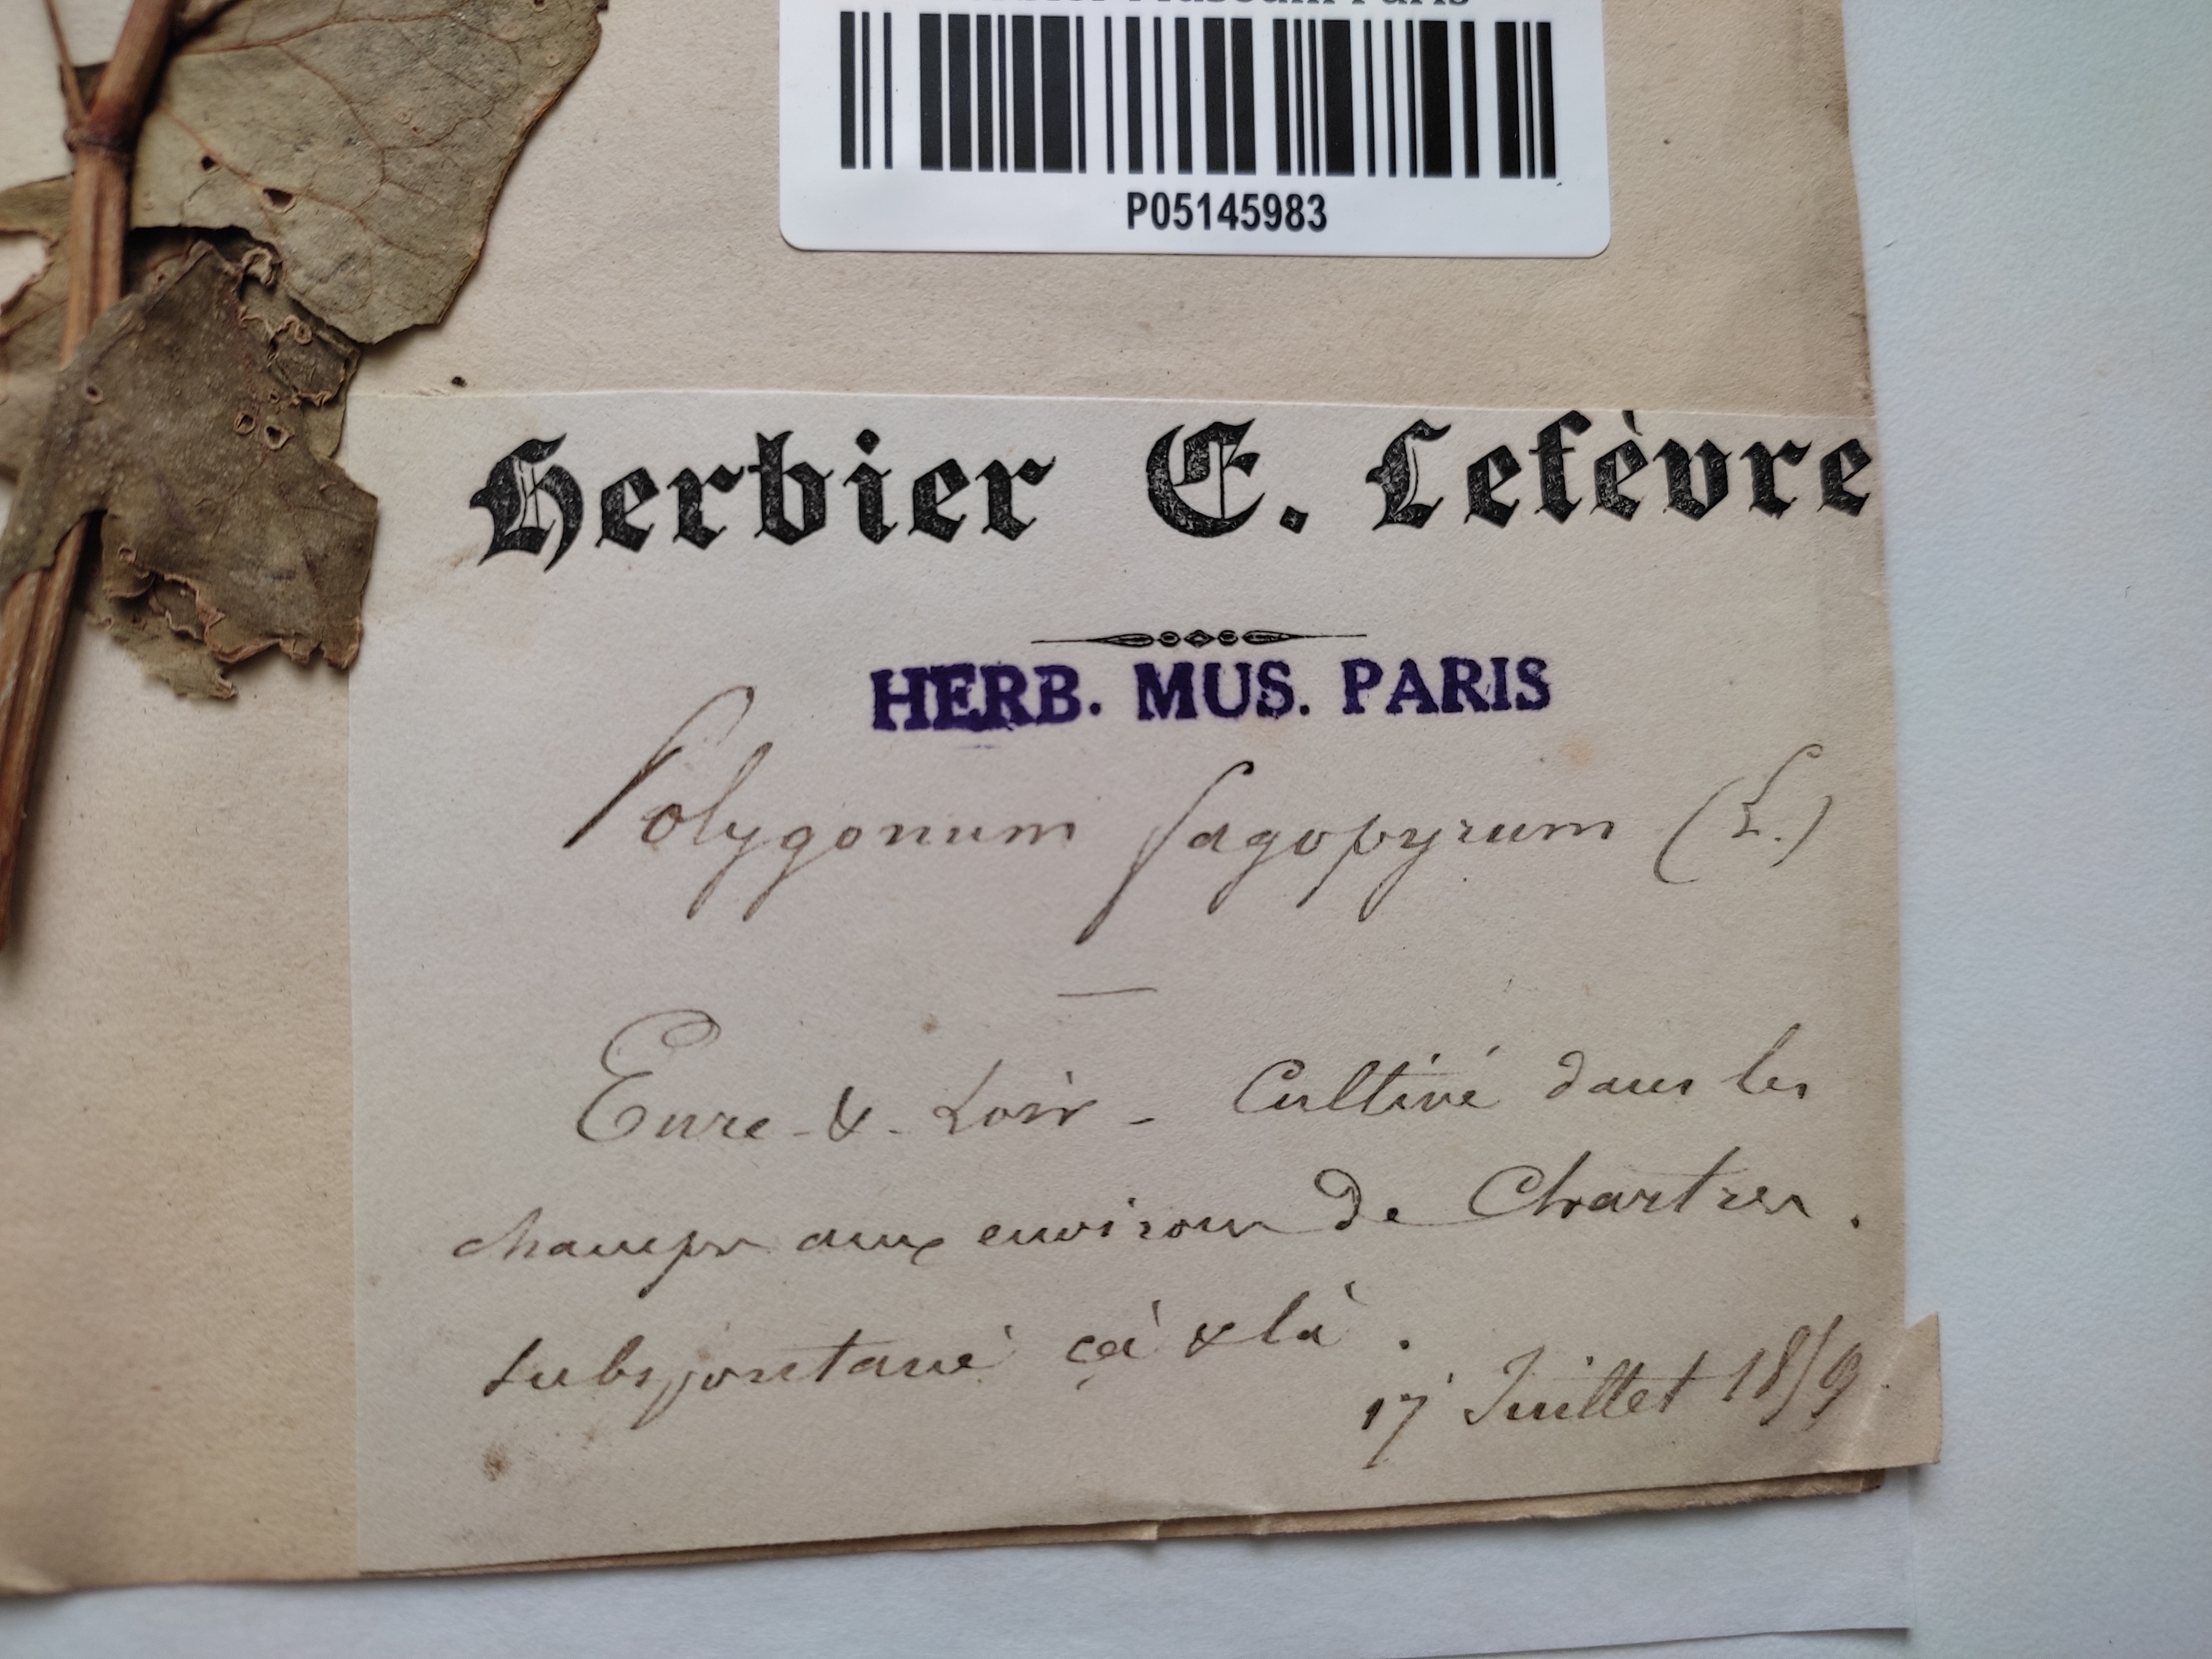 P05145983
Herbier E. Lefèvre
HERB. MUS. PARIS
Polygonum fagopyrum (L.)
Eure-&-Loir - Cultivé dans les
champs aux environs de Chartres.
subspontané çà & là.
17 Juillet 1859